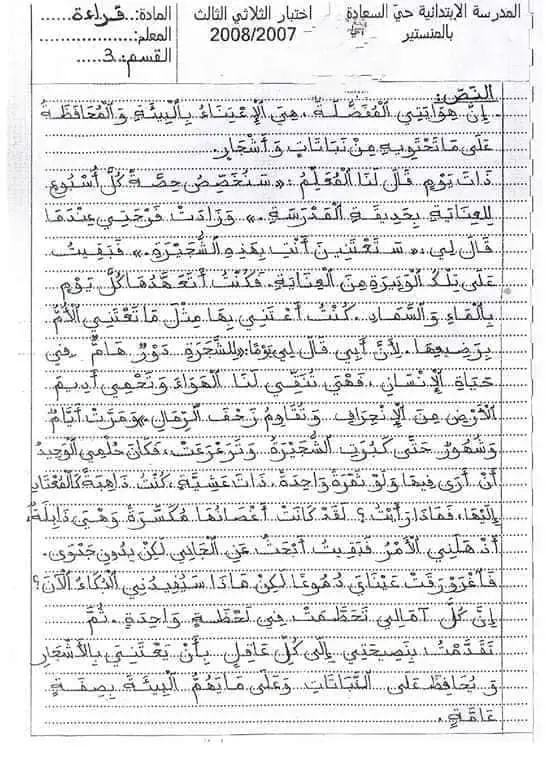 المدرسة الإبتدائية حيّ السعادة بالمنستير
اختبار الثلاثي الثالث
2008/2007
المادة:..قراءة......
المعلم:.................
القسم:.3.....
النصّ:
إِنَّ هِوَايَتِي الْمُفَضَّلَةُ ، هِيَ الْإِعْتِنَاءُ بِالْبِيئَةِ وَالْمُحَافَظَةُ
عَلَى مَا تَحْتَوِيهِ مِنْ نَبَاتَاتٍ وَأَشْجَارٍ.
ذَاتَ يَوْمٍ قَالَ لَنَا الْمُعَلِّمُ :« سَنُخَصِّصُ حِصَّةً كُلَّ أُسْبُوعٍ
لِلعِنَايَةِ بِحَدِيقَةِ الْمَدْرَسَةِ .» وَزَادَتْ فَرْحَتِي عِنْدَمَا
قَالَ لِي :« سَتَعْتَنِينَ أَنْتِ بِهَذِهِ الشُّجَيْرَةِ .» فَبَقِيتُ
عَلَى تِلْكَ الْوَتِيرَةِ مِنَ الْعِنَايَةِ. فَكُنْتُ أَتَعَهَّدُهَا كُلَّ يَوْمٍ
بِالْمَاءِ وَالسَّمَادِ . كُنْتُ أَعْتَنِي بِهَا مِثْلَ مَا تَعْتَنِي الْأُمُّ
بِرَضِيعِهَا . لِأَنَّ أَبِي قَالَ لِي يَوْمًا :« لِلشَّجَرَةِ دَوْرٌ هَامٌّ فِي
حَيَاةِ الْإِنْسَانِ ، فَهْيَ تُنَقِّي لَنَا الْهَوَاءَ وَتَحْمِي أَدِيمَ
الْأَرْضِ مِنَ الْإِنْجِرَافِ وَتُقَاوِمُ زَحْفَ الرِّمَالِ .» وَمَرَّتْ أَيَّامٌ
وَشُهُورٌ حَتَّى كَبُرَتِ الشُّجَيْرَةُ وَتَرَعْرَعَتْ ، فَكَانَ حُلْمِي الْوَحِيدُ
أَنْ أَرَى فِيهَا وَلَوْ ثَمْرَةً وَاحِدَةً . ذَاتَ عَشِيَّةٍ ، كُنْتُ ذَاهِبَةً كَالْمُعْتَادِ
إِلَيْهَا ، فَمَاذَا رَأَيْتُ ؟ لَقَدْ كَانَتْ أَغْصَانُهَا مُكَسَّرَةً وَهْيَ ذَابِلَةٌ،
أَذْهَلَنِي الْأَمْرُ فَبَقِيتُ أَبْحَثُ عَنِ الْجَانِي لَكِنْ بِدُونِ جَدْوَى.
فَاغْرَوْرَقَتْ عَيْنَايَ دُمُوعًا لَكِنْ مَاذَا سَيُفِيدُنِي الْبُكَاءُ الْآنَ ؟
إِنَّ كُلَّ آمَالِي تَحَطَّمَتْ فِي لَحْظَةٍ وَاحِدَةٍ . ثُمَّ
تَقَدَّمْتُ بِنَصِيحَتِي إِلَى كُلِّ عَاقِلٍ بِأَنْ يَعْتَنِيَ بِالْأَشْجَارِ
وَيُحَافِظَ عَلَى النَّبَاتَاتِ وَعَلَى مَا يَهُمُّ الْبِيئَةَ بِصِفَةٍ
عَامَّةٍ .